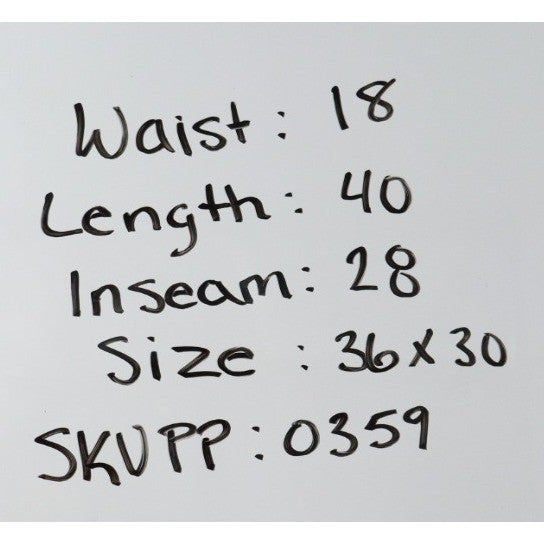 Waist: 18
Length: 40
Inseam: 28
Size : 36x30
SKUPP: 0359